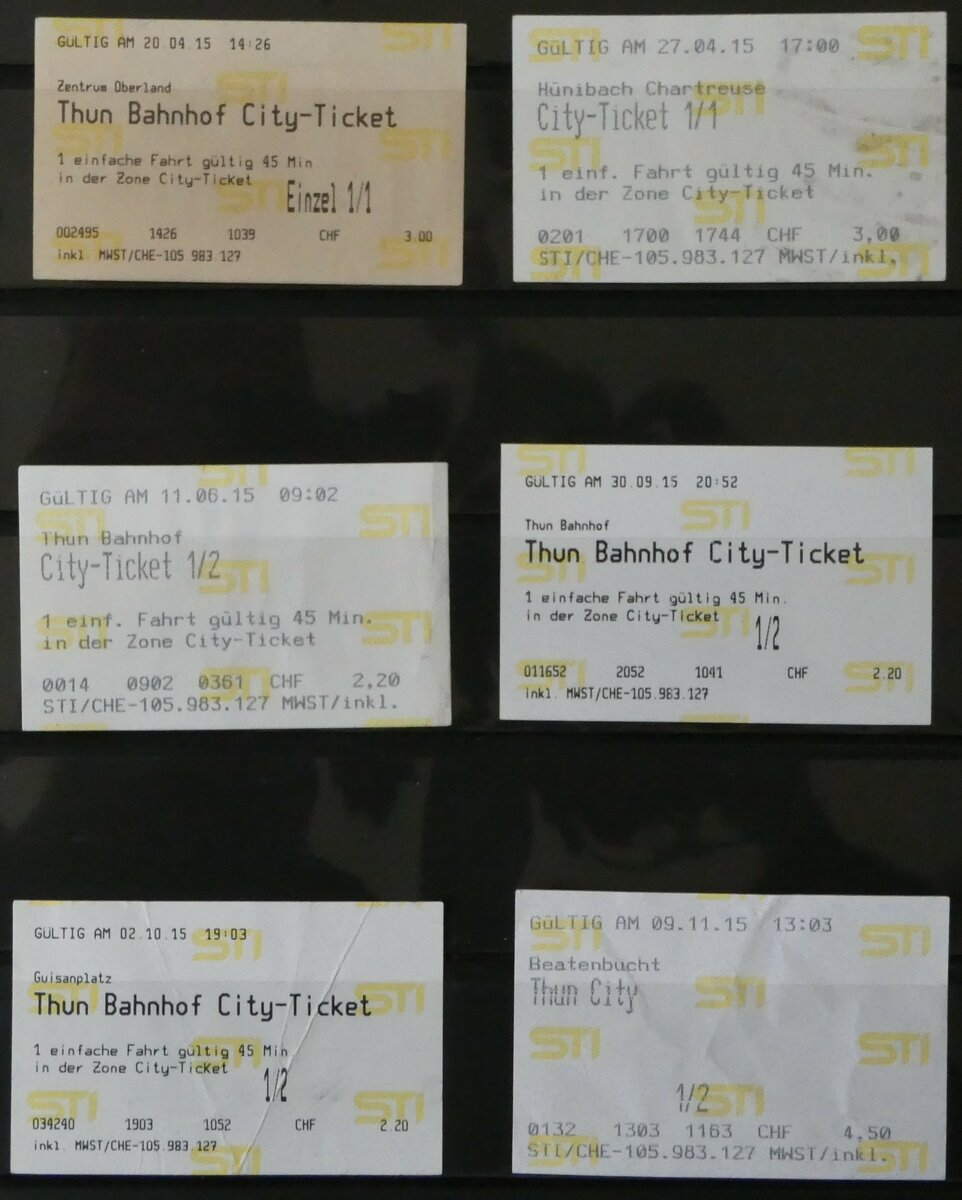 GÜLTIG AM 20.04.15 14:26
Zentrum Oberland
Thun Bahnhof City-Ticket
1 einfache Fahrt gültig 45 Min.
in der Zone City-Ticket
Einzel 1/1
002495 1426 1039 CHF 3.00
inkl. MWST/CHE-105.983.127
GüLTIG AM 27.04.15 17:00
Hünibach Chartreuse
City-Ticket 1/1
1 einf. Fahrt gültig 45 Min.
in der Zone City-Ticket
0201 1700 1744 CHF 3,00
STI/CHE-105.983.127 MWST/inkl.
GüLTIG AM 11.06.15 09:02
Thun Bahnhof
City-Ticket 1/2
1 einf. Fahrt gültig 45 Min.
in der Zone City-Ticket
0014 0902 0361 CHF 2,20
STI/CHE-105.983.127 MWST/inkl.
GÜLTIG AM 30.09.15 20:52
Thun Bahnhof
Thun Bahnhof City-Ticket
1 einfache Fahrt gültig 45 Min.
in der Zone City-Ticket
1/2
011652 2052 1041 CHF 2.20
inkl. MWST/CHE-105.983.127
GÜLTIG AM 02.10.15 19:03
Guisanplatz
Thun Bahnhof City-Ticket
1 einfache Fahrt gültig 45 Min.
in der Zone City-Ticket
1/2
034240 1903 1052 CHF 2.20
inkl. MWST/CHE-105.983.127
GüLTIG AM 09.11.15 13:03
Beatenbucht
Thun City
1/2
0132 1303 1163 CHF 4,50
STI/CHE-105.983.127 MWST/inkl.
STI